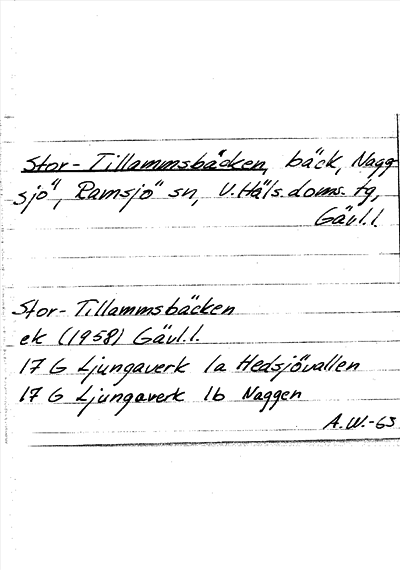 Stor-Tillammsbäcken, bäck, Nagg-
sjö, Ramsjö sn, V.Häls.doms. tg,
Gävl.l.
Stor-Tillammsbäcken
ek (1958) Gävl.l.
17 G Ljungaverk 1a Hedsjövallen
17 G Ljungaverk 1b Naggen
A.W.-63